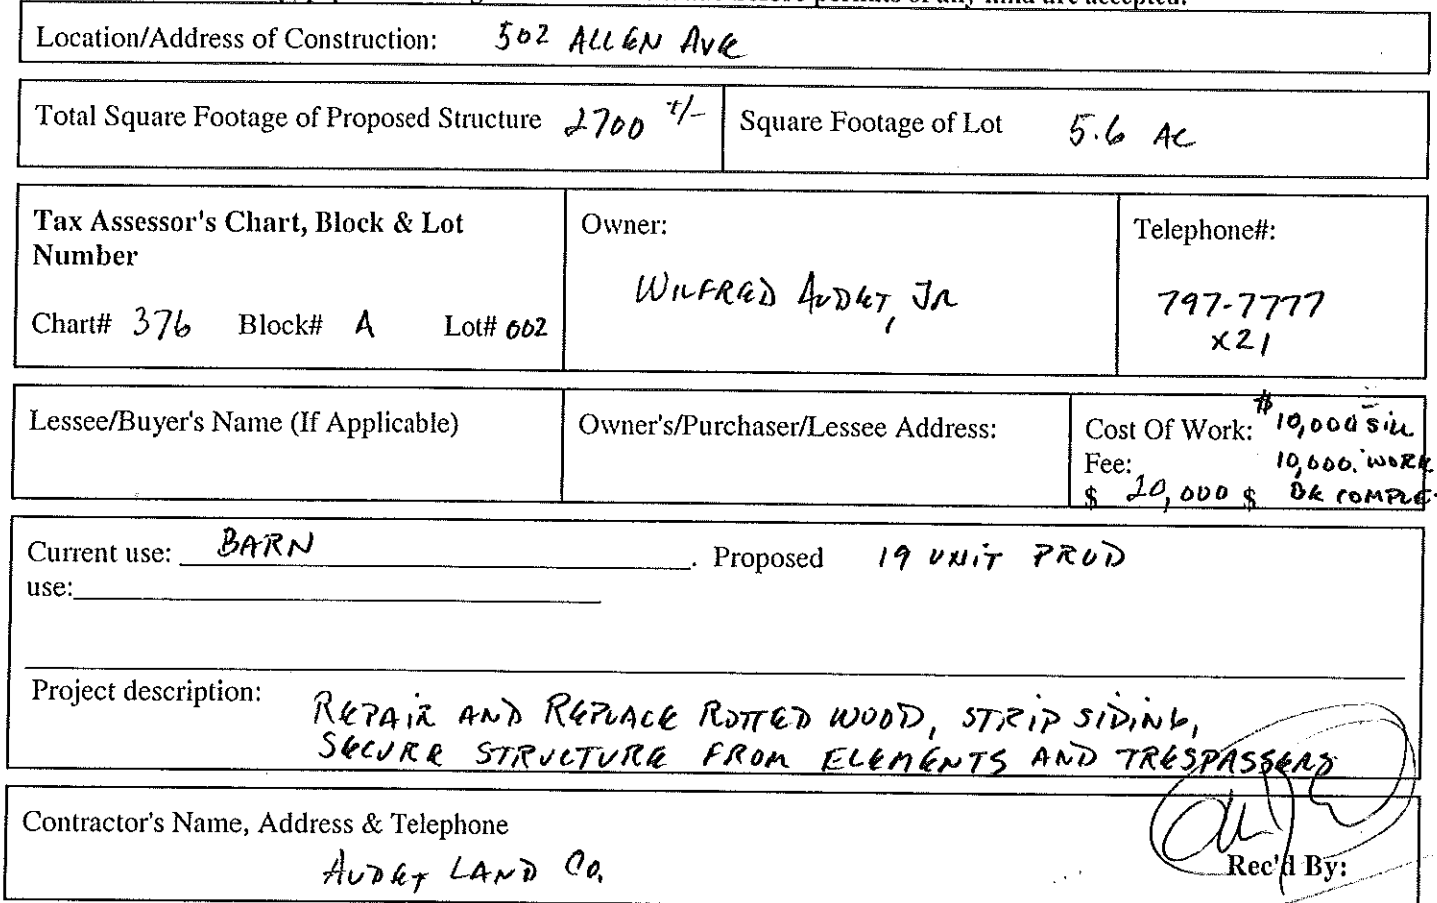 permits of any kind are accepted.
Location/Address of Construction: 502 ALLEN AVE
Total Square Footage of Proposed Structure 2700 +/- Square Footage of Lot 5.6 AC
Tax Assessor's Chart, Block & Lot
Number
Chart# 376 Block# A Lot# 002
Owner:
WILFRED AUDET, JR
Telephone#:
797-7777
x21
Lessee/Buyer's Name (If Applicable)
Owner's/Purchaser/Lessee Address:
Cost Of Work: $10,000 sill
Fee: 10,000. WORK
$ 20,000 $ OK COMPLE.
Current use: BARN. Proposed 19 UNIT PRUD
use:
Project description:
REPAIR AND REPLACE ROTTED WOOD, STRIP SIDING,
SECURE STRUCTURE FROM ELEMENTS AND TRESPASSERS
Contractor's Name, Address & Telephone
AUDET LAND CO.
Rec'd By: